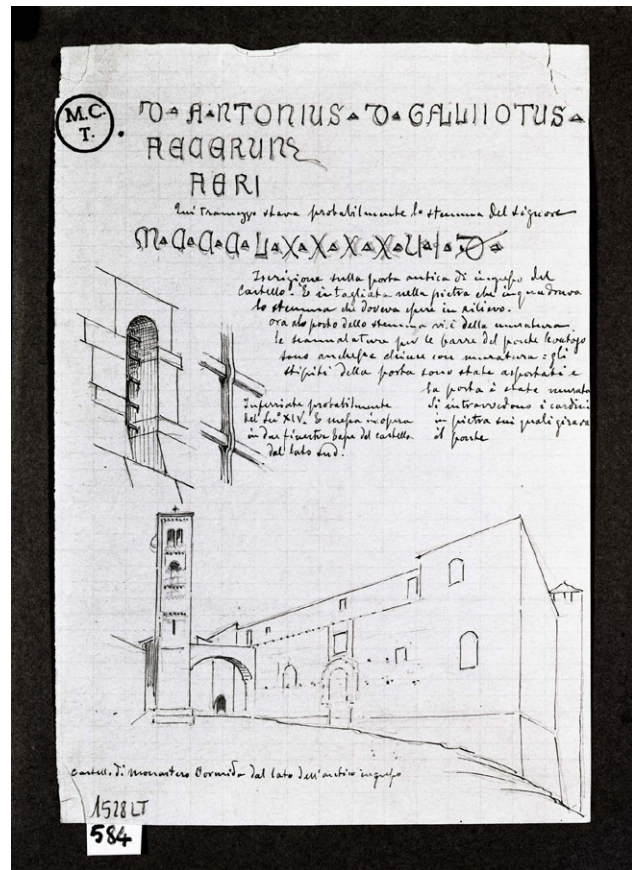 M.C.
T.
D▴ A▴NTONIUS▴ D▴ GALLIIOTUS▴
FECERUNT
FERI
Qui tramezzo stava probabilmente lo stemma del signore
M▴C▴C▴C▴L▴X▴X▴X▴X▴U▴I▴D▴
Iscrizione sulla porta antica di ingresso del
Castello. È intagliata nella pietra che inquadrava
lo stemma che doveva essere in rilievo.
ora al posto dello stemma vi è della muratura
le scannalature per le barre del ponte levatojo
sono anch'esse chiuse con muratura: gli
stipiti della porta sono state asportati e
la porta è stata murata
Si intravvedono i cardini
in pietra sui quali girava
il ponte
Inferriate probabilmente
del Sec° XIV. È messa in opera
in due finestre basse del castello
dal lato sud.
Castello di Monastero Bormida dal lato dell'antico ingresso
1528 LT
584